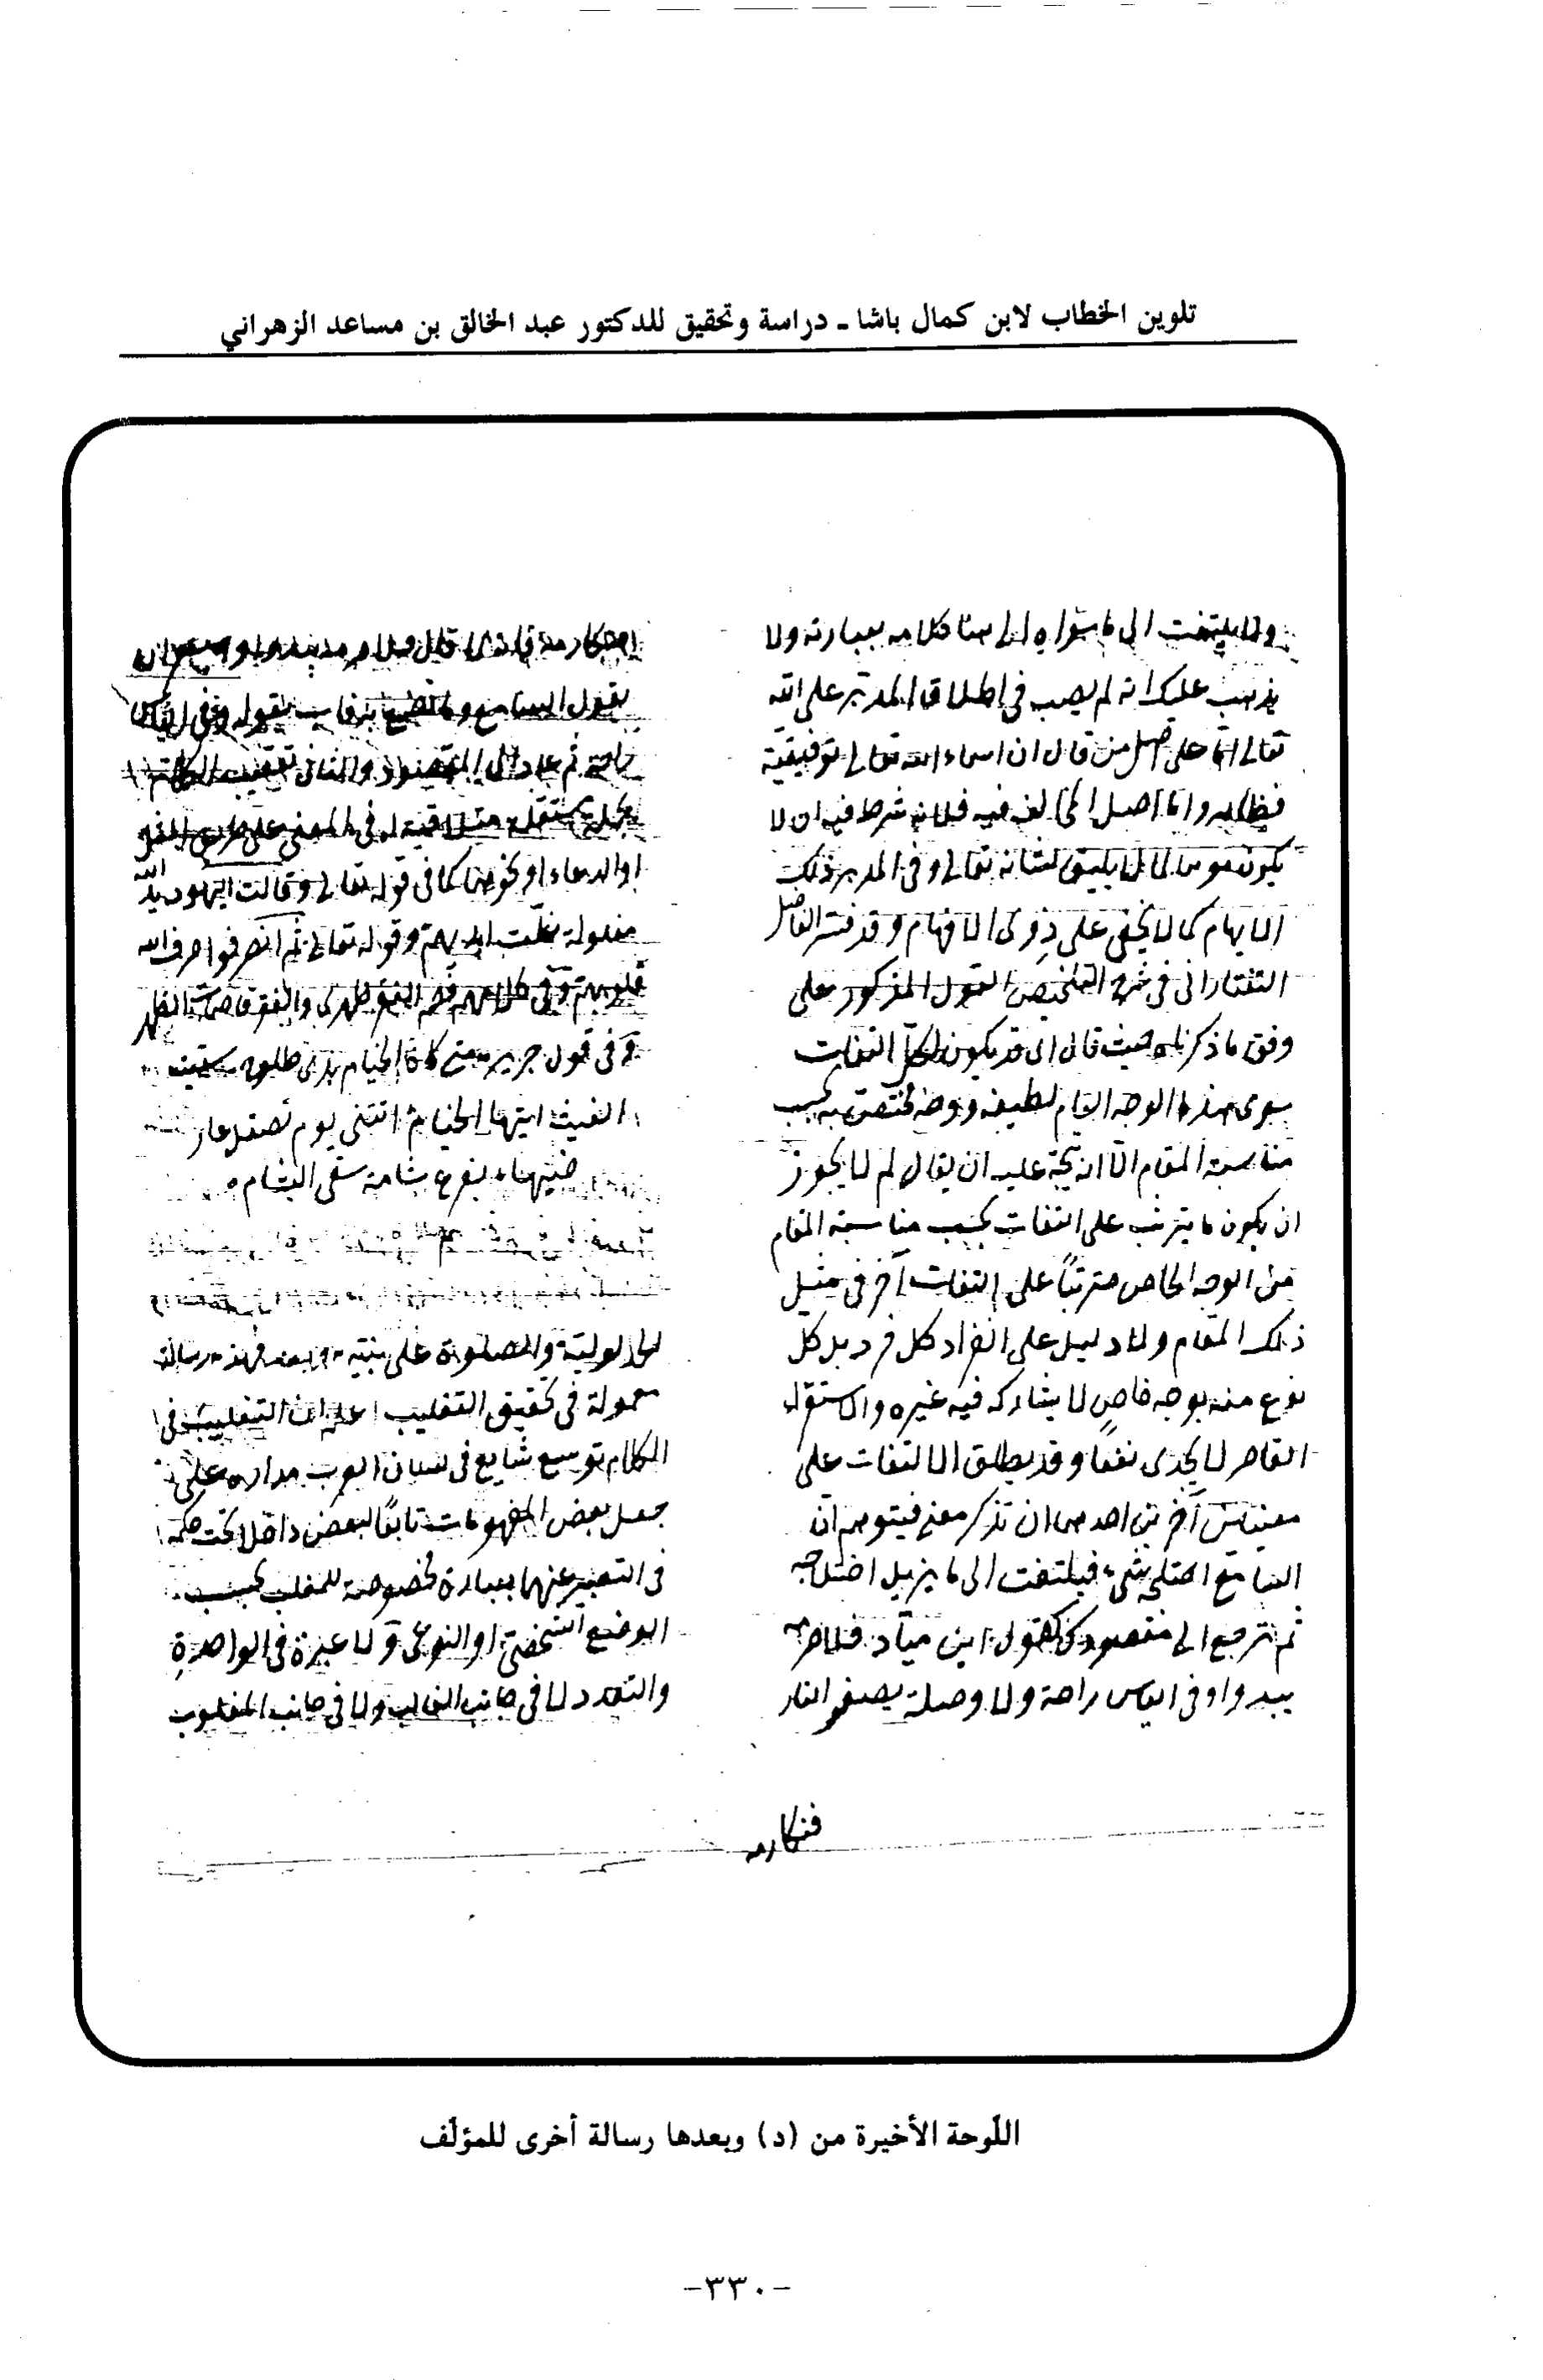 تلوين الخطاب لابن كمال باشا ـ دراسة وتحقيق للدكتور عبد الخالق بن مساعد الزهراني
ولا يلتفت الى ما سواه الى هنا كلامه بعبارته ولا
يذهب عليك انه لم يصب فى اطلاق المدبر على الله
تعالى اما على اصل من قال ان اسماء الله تعالى توقيفية
فظاهر واما اصل المخالف فيه فلانه شرط فيه ان لا
يكون موهما لما لا يليق لشانه تعالى وفى المدبر ذلك
الايهام كما لا يخفى على ذوى الافهام وقد فسر الفاضل
التفتازانى فى شرح التلخيص القول المذكور على
وفق ما ذكرناه حيث قال اى قد يكون لكل التفات
سوى هذا الوجه العام لطيفه ووجه مختص به بحسب
مناسبة المقام الا انه يتجه عليه ان يقال لم لا يجوز
ان يكون ما يترتب على التفات بحسب مناسبة المقام
من الوجه الخاص مترتبًا على التفات آخر فى مثل
ذلك المقام ولا دليل على انفراد كل فرد بل كل
نوع منه بوجه خاص لا يشاركه فيه غيره والاستقراء
القاصر لا يجدى نفعًا وقد يطلق الالتفات على
معنيين آخرين احدهما ان تذكر معنى فيتوهم ان
السامع اختلجه شىء فيلتفت الى ما يزيل اختلاجه
ثم ترجع الى مقصودك كقول ابن مياد فلا صرمه
يبدو وفى الياس راحة ولا وصله يصفو لنا
فنكارمه
يقول السامع وما تصنع به فاجاب بقوله وفى الياس
راحة ثم عاد الى المقصود والثانى تعقيب الكلام
بجملة مستقلة متلاقية له فى المعنى على طريق المثل
او الدعاء او نحوهما كما فى قوله تعالى وقالت اليهود يد الله
مغلولة غلت ايديهم وقوله تعالى ثم انصرفوا صرف الله
قلوبهم وفى كلامهم قصم الفقر ظهرى والفقر قاصمة الظهر
وفى قول جرير متى كان الخيام بذى طلوح سقيت
الغيث ايتها الخيام اتنسى يوم تصقل عار
ضيها بفرع بشامة سقى البشام
لوليه والصلوة على نبيه وبعد فهذه رسالة
معمولة فى تحقيق التغليب اعلم ان التغليب فى
الكلام توسع شايع فى لسان العرب مداره على
جعل بعض المفهومات تابعًا لبعض داخلا تحت حكمه
فى التعبير عنهما بعبارة مخصوصة للمغلب بحسب
الوضع الشخصى او النوعى ولا عبرة فى الواحدة
والتعدد لا فى جانب الغالب ولا فى جانب المغلوب
اللّوحة الأخيرة من (د) وبعدها رسالة أخرى للمؤلّف
-٣٣٠-